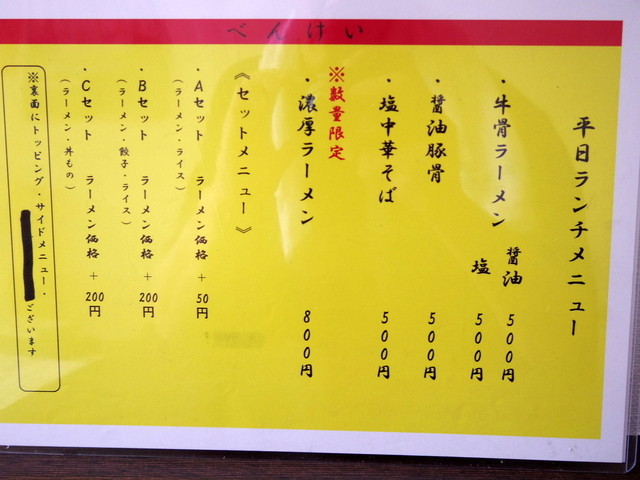 べんけい
平日ランチメニュー
・牛骨ラーメン 醤油 500円
塩 500円
・醤油豚骨 500円
・塩中華そば 500円
※数量限定
・濃厚ラーメン 800円
《セットメニュー》
・Aセット ラーメン価格 + 50円
（ラーメン・ライス）
・Bセット ラーメン価格 + 200円
（ラーメン・餃子・ライス）
・Cセット ラーメン価格 + 200円
（ラーメン・丼もの）
※裏面にトッピング・サイドメニュー・
ございます